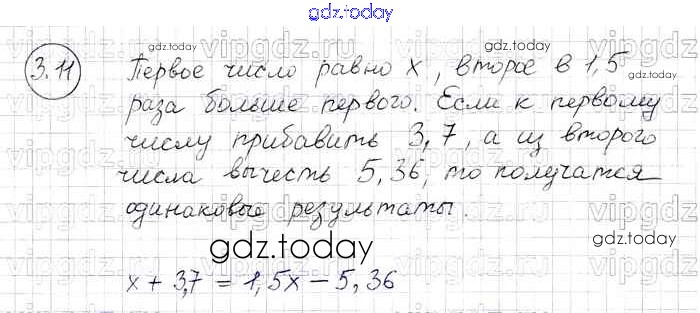 gdz.today
3.11
Первое число равно x, второе в 1,5
раза больше первого. Если к первому
числу прибавить 3,7, а из второго
числа вычесть 5,36, то получатся
одинаковые результаты.
gdz.today
x + 3,7 = 1,5x - 5,36